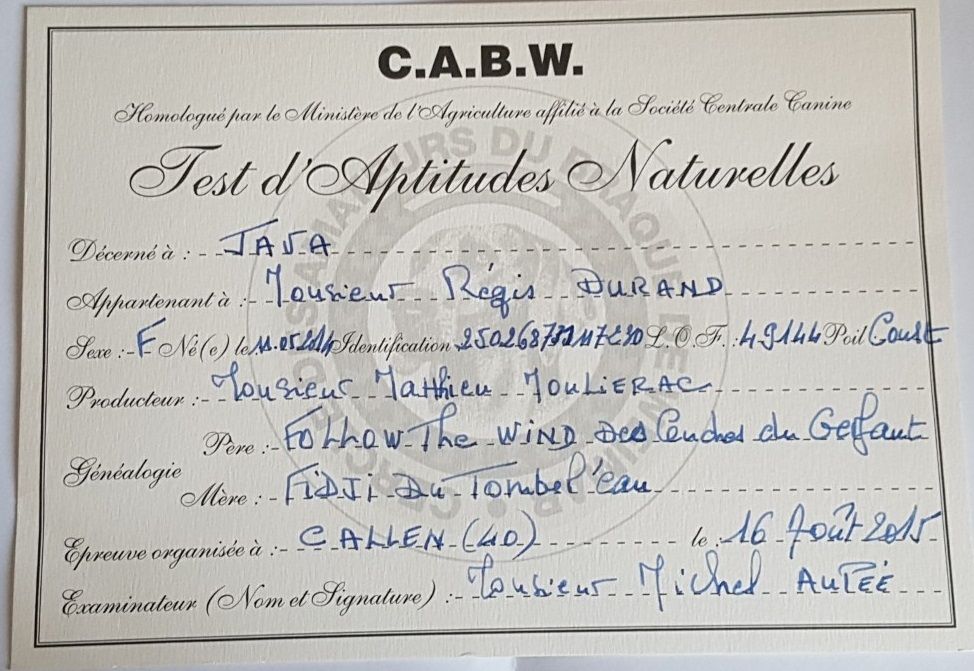 C.A.B.W.
Homologué par le Ministère de l'Agriculture affilié à la Société Centrale Canine
Test d'Aptitudes Naturelles
Décerné à : JAVA
Appartenant à : Monsieur Régis DURAND
Sexe : F Né(e) le 11.05.2014 Identification L.O.F. : 49144 Poil Court
Producteur : Monsieur Matthieu MOULIERAC
Père : Follow The WIND Des Cendres du Gerfaut
Généalogie
Mère : FIDJI Du Tombel'eau
Epreuve organisée à : CALLEN (40) le : 16 Août 2015
Examinateur (Nom et Signature) : Monsieur Michel